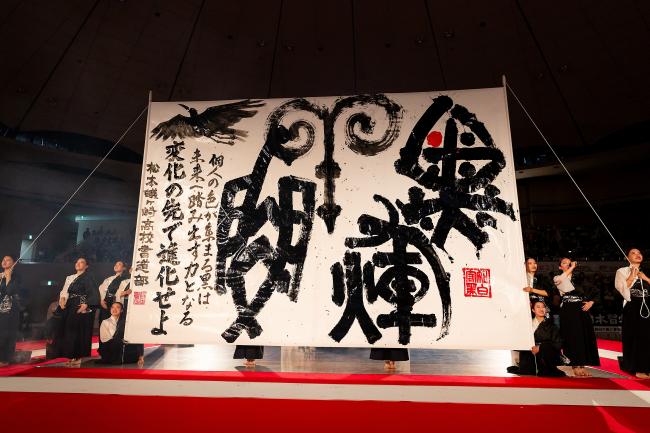 奥
輝
個人の色が集まる黒は
未来へ踏み出す力となる
変化の先で進化せよ
松本蟻ヶ崎高校書道部